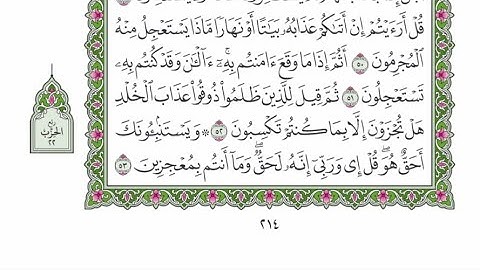 قُلْ أَرَءَيْتُمْ إِنْ أَتَىٰكُمْ عَذَابُهُۥ بَيَٰتًا أَوْ نَهَارًا مَّاذَا يَسْتَعْجِلُ مِنْهُ
ٱلْمُجْرِمُونَ ٥٠ أَثُمَّ إِذَا مَا وَقَعَ ءَامَنتُم بِهِۦٓ ۚ ءَآلْـَٰٔنَ وَقَدْ كُنتُم بِهِۦ
تَسْتَعْجِلُونَ ٥١ ثُمَّ قِيلَ لِلَّذِينَ ظَلَمُوا۟ ذُوقُوا۟ عَذَابَ ٱلْخُلْدِ
هَلْ تُجْزَوْنَ إِلَّا بِمَا كُنتُمْ تَكْسِبُونَ ٥٢ ۞ وَيَسْتَنۢبِـُٔونَكَ
أَحَقٌّ هُوَ ۖ قُلْ إِى وَرَبِّىٓ إِنَّهُۥ لَحَقٌّ ۖ وَمَآ أَنتُم بِمُعْجِزِينَ ٥٣
الحزب
٢٢
٢١٤